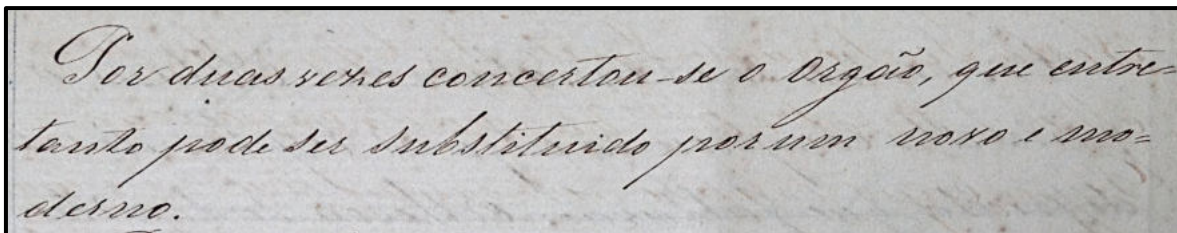 Por duas vezes concertou-se o Orgão, que entre=
tanto pode ser substituido por um novo e mo=
derno.